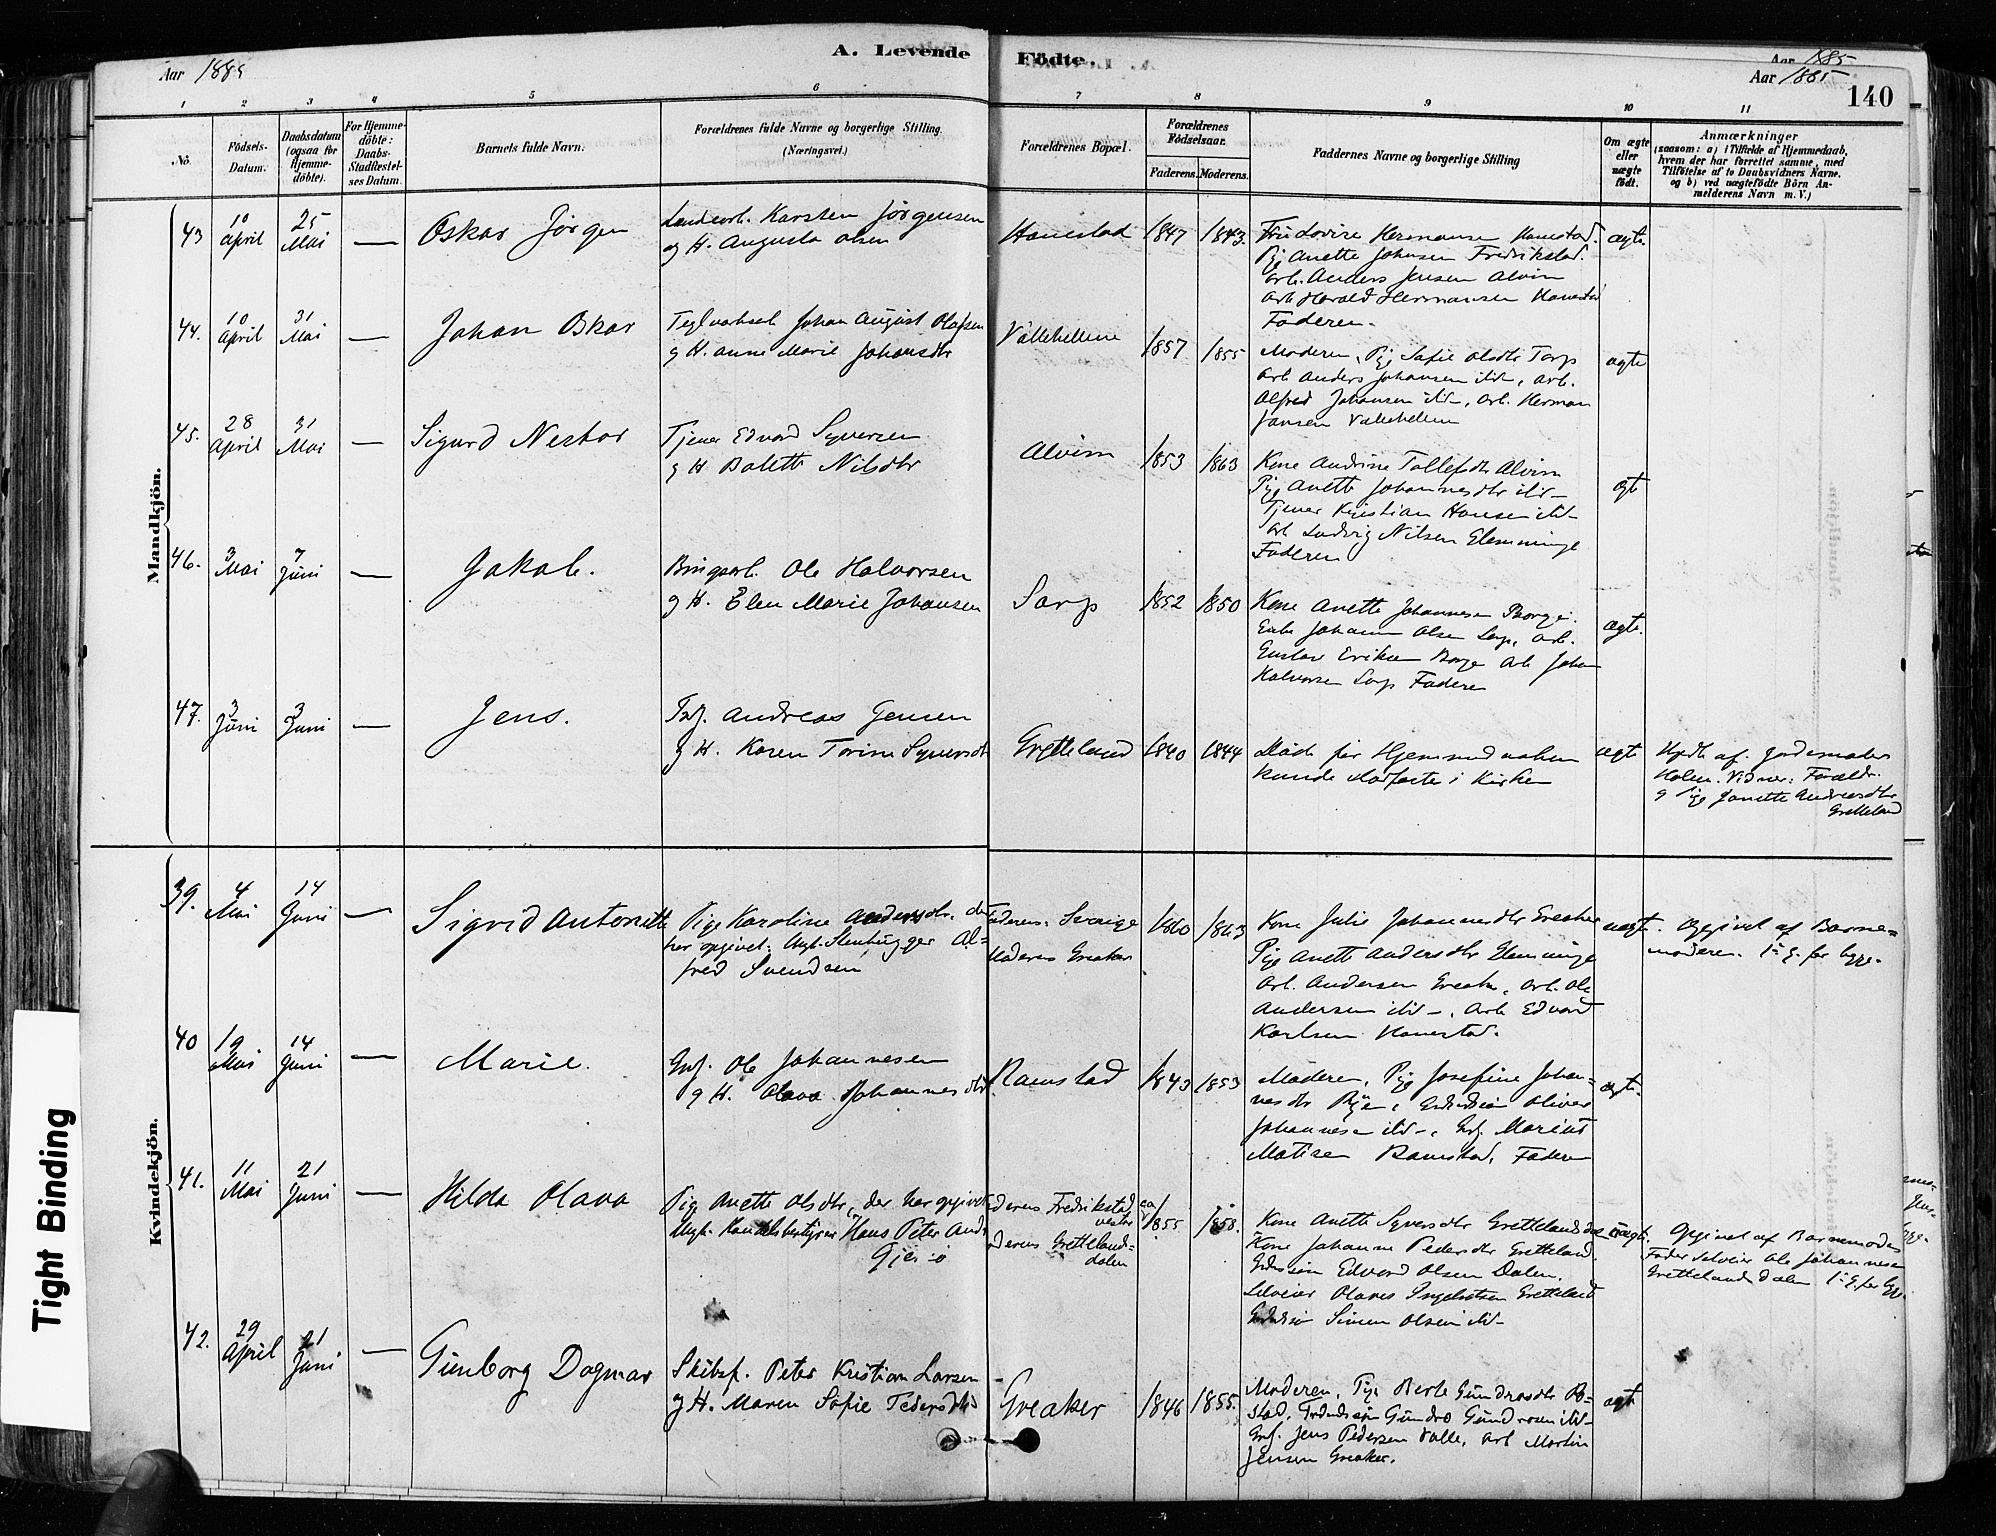 A. Levende Födte.
Aar 1885
Aar 1885
Aar 1885
140
1 2 3 4 5 6 7 8 9 10 11
No.
Födsels-Datum.
Daabsdatum (ogsaa for Hjemme-döbte).
For Hjemme-döbte: Daabs-Stadfæstel-ses Datum.
Barnets fulde Navn.
Forældrenes fulde Navne og borgerlige Stilling. (Næringsvei.)
Forældrenes Bopæl.
Forældrenes Födselsaar.
Faderens. Moderens.
Faddernes Navne og borgerlige Stilling
Om ægte eller uægte födt.
Anmærkninger
(saasom: a) i Tilfælde af Hjemmedaab, hvem der har forrettet samme, med Tilföielse af to Daabsvidners Navne. og b) ved uægtefödte Börn Anmelderens Navn m. V.)
Mandkjön.
43 10 April 25 Mai — Oskar Jörgen
Karsten Jörgensen
og H. Augusta Olsen
Hanestad 1847 1843
Hermansen Hanestad.
Pig Anette Johnsen Fredrikstad.
Arb. Anders Jensen Alvim
Arb Harald Hermansen Hanestad
Faderen.
ægte.
44. 10 April 31 Mai — Johan Oskar
Johan August Olafsen
g H. Anne Marie Johansdtr
Vallehellene 1857 1855
Moderen, Pig Sofie Olsdtr Torp
Arb Anders Johansen ibid, Arb.
Alfred Johansen ibid, Arb. Herman
Jansen Vallehellen
ægte
45. 28 April 31 Mai — Sigurd Nestor
Tjener Edvard Syversen
g H Bolette Nilsdtr
Alvim 1853 1863
Kone Andrine Tollefsdtr Alvim
Pig Anette Johannesdtr ibid
Tjener Kristian Hansen ibid
Arb Ludvig Nilsen Glemminge
Faderen
ægt
46. 3 Mai 7 Juni — Jakob.
Brugsarb. Ole Halvorsen
g H. Elen Marie Johansen
Sarp 1852 1850
Kone Anette Johannesen Borge.
Enke Johanne Olsen Sarp, Arb.
Gustav Eriksen Borge Arb Johan
Halvorsen Sarp Faderen
ægte.
47. 3 Juni 3 Juni — Jens.
Andreas Jensen
g H. Karen Torine Syversdtr
Gretteland 1840 1844
Döde för Hjemmedaaben
kunde stadfæstes i Kirken
ægte
Hjdt af. Jordemoder
Holm. Vidner: Forældr.
g Pige Janette Andreasdtr
Gretteland
Kvindekjön.
39. 4 Mai 14 Juni — Sigrid Antonette
Pige Karoline Andersdtr. der
har opgivet: Ungk. Stenhugger Al=
fred Svendsen
Faderens: Sverige
Moderens Greaker
1860 1863
Kone Julie Johannesdtr Greaker
Pige Anette Andersdtr Glemminge
Arb. Andersen Greaker, Arb. Ole
Andersen ibid —, Arb Edvard
Karlsen Hanestad.
uægt.
Opgivet af Barne=
moderen. 1ste g. for begge.
40 19 Mai 14 Juni — Marie.
Grf. Ole Johannesen
g H. Olava Johannesdtr
Ramstad 1843 1853
Moderen, Pige Josefine Johan=
nesdtr Rÿen, Oliver
Johannesen ibid —, Grf. Marius
Matisen Ramstad, Faderen
ægte.
41. 11 Mai 21 Juni — Hilda Olava
Pige Anette Olsdtr, der har opgivet
Ungk. Handelsbestyrer Hans Peter Andr
Faderens Fredrikstad
Moderens Gretteland=
dalen
ca 1855 1858.
Kone Anette Syversdtr Grettelanddalen
Kone Johanne Pedersdtr Gretteland
Edvard Olsen Dalen,
Selveier Olaves Gretteland
Simen Olsen ibid —
uægte.
Opgivet af Barnemoders
Fader Selveier Ole Johannesen
Grettelanddalen 1ste g. for begge
42. 29 April 21 Juni — Gunborg Dagmar
Skibsf. Peter Kristian Larsen
g H. Maren Sofie Pedersdtr
Greaker 1846 1855.
Moderen, Pige Berte Gundrosdtr Bö=
stad, Gundro Gundrosen ibid —
Grf. Jens Pedersen Valle, Arb Martin
Jensen Greaker.
ægte
Tight Binding